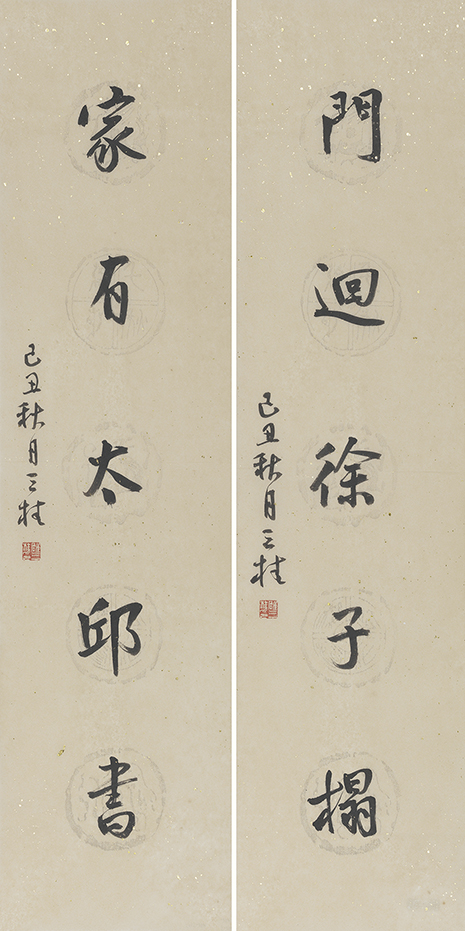 門迴徐子榻
己丑秋月三桂
家有太邱書
己丑秋月三桂